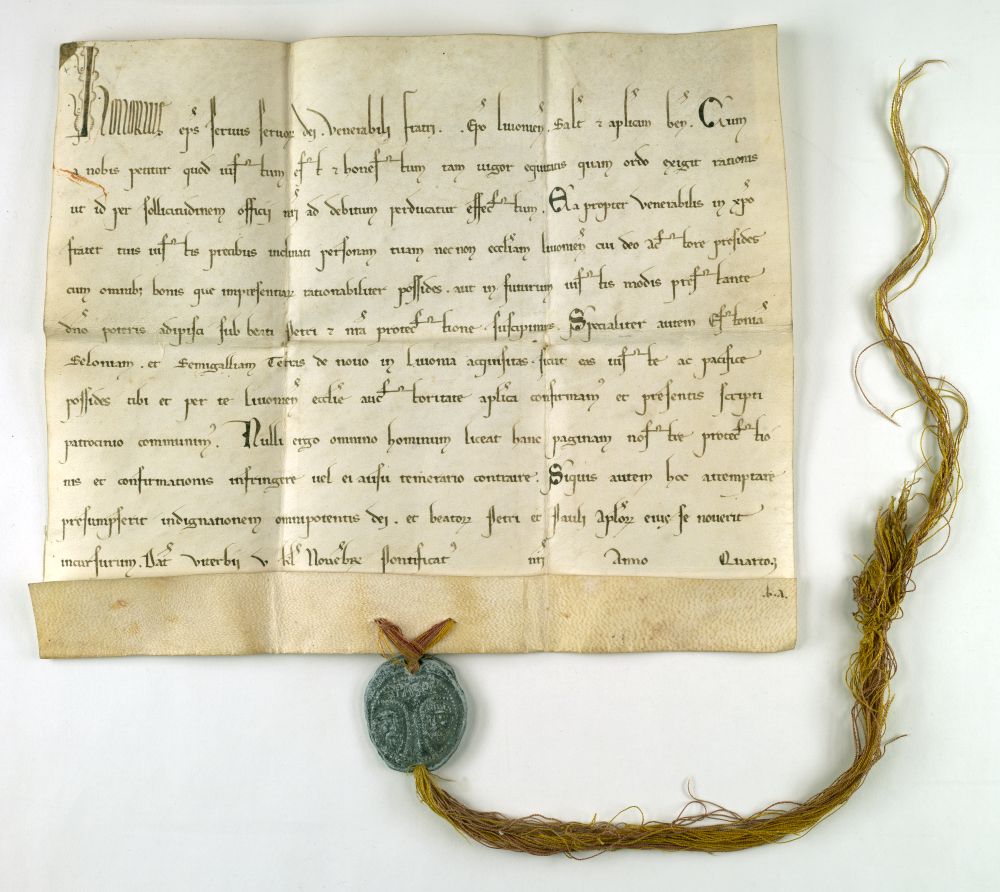 Honorius ep̄s servus servoꝝ dei. Venerabili fratri .. Epō Livonień. Salt̄ ⁊ aplicām beń. Cum
a nobis petitur quod iustum est ⁊ honestum tam vigor equitatis quam ordo exigit rationis
ut id per sollicitudinem officii nr̄i ad debitum perducatur effectum. Ea propter venerabilis in xp̄o
frater tuis iustis precibus inclinati personam tuam necnon eccl̄iam Livonień cui deo actore presides
cum omnibꝫ bonis que impresentiaꝝ rationabiliter possides. aut in futurum iustis modis prestante
dn̄o poteris adipisci sub beati Petri ⁊ nr̄a protectione suscipimus. Specialiter autem Estoniā
Seloniam. et Semigalliam Terras de novo in Livonia acquisitas. sicut eas iuste ac pacifice
possides tibi et per te Livonień ecclīe auctoritate aplicā confirmamꝰ et presentis scripti
patrocinio communimꝰ. Nulli ergo omnino hominum liceat hanc paginam nostre protectio
nis et confirmationis infringere vel ei ausu temerario contraire. Siquis autem hoc attemptare
presumpserit indignationem omnipotentis dei. et beatoꝝ Petri et Pauli Apl̄oꝝ eiꝰ se noverit
incursurum. Dat̄ Viterbii v kl̄ Novēbr̄ Pontificatꝰ nr̄i Anno Quarto
.b.a.